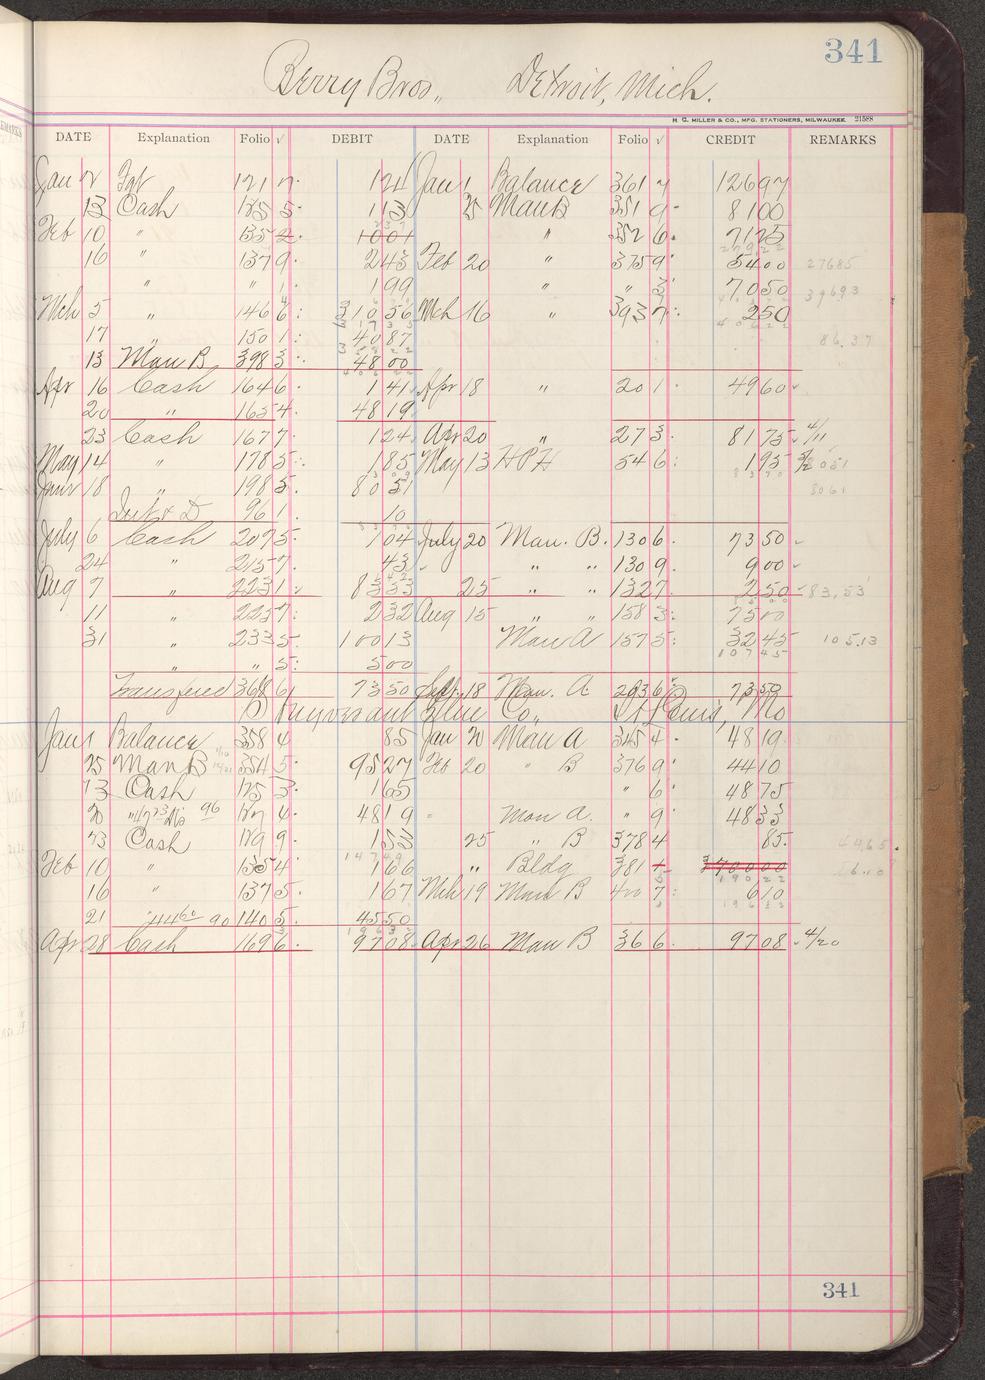 341
Berry Bros., Detroit, Mich.
H. G. MILLER & CO., MFG. STATIONERS, MILWAUKEE 21588
DATE Explanation Folio √ DEBIT DATE Explanation Folio √ CREDIT REMARKS
Jan 2 121 7 1 24 Jan 1 Balance 361 7 126 97
13 Cash 125 5 1 13 25 Man B 351 9 81 00
Feb 10 " 135 2 10 01 " 352 6 71 25
16 " 137 9 2 43 Feb 20 " 375 9 54 00 276 85
" " 1 1 99 " " 3 70 50 396 93
Mch 5 " 146 6 310 56 Mch 16 " 393 7 2 50
17 " 150 1 40 87 86.37
13 Man B 398 3 48 00
Apr 16 Cash 164 6 1 41 Apr 18 " 20 1 49 60
20 " 165 4 48 19
23 Cash 167 7 1 24 Apr 20 " 27 3 81 75 4/11
May 14 " 178 5 1 85 May 13 H P H 54 6 1 95
June 18 " 198 5 80 51 80 61
Int & D 96 1 10
July 6 Cash 207 5 1 04 July 20 Man. B. 130 6 73 50
24 " 215 7 43 " " 130 9 9 00
Aug 7 " 223 1 83 53 25 " " 132 7 2 50 83,53
11 " 225 7 2 32 Aug 15 " " 158 3 75 00
31 " 233 5 100 13 Man A 157 5 32 45 105.13
" " 5 5 00
Transfered 368 6 73 50 Sept. 18 Man. A 203 6 73 50
P Stuyvesant Glue Co., St Louis, Mo
Jan 1 Balance 358 4 85 Jan 20 Man A 345 4 48 19
25 Man B 354 5 95 27 Feb 20 " B 376 9 44 10
13 Cash 125 3 1 65 " 6 48 75
20 " 47 23 Dis 96 127 4 48 19 Man A. " 9 48 33
23 Cash 129 9 1 53 25 " B 378 4 85.
Feb 10 " 135 4 1 66 " Bldg 381
16 " 137 5 1 67 Mch 19 Man B 400 7 6 10
21 " 44 60 90 140 5 45 50
Apr 28 Cash 169 6 97 08 Apr 26 Man B 36 6 97 08 4/20
341